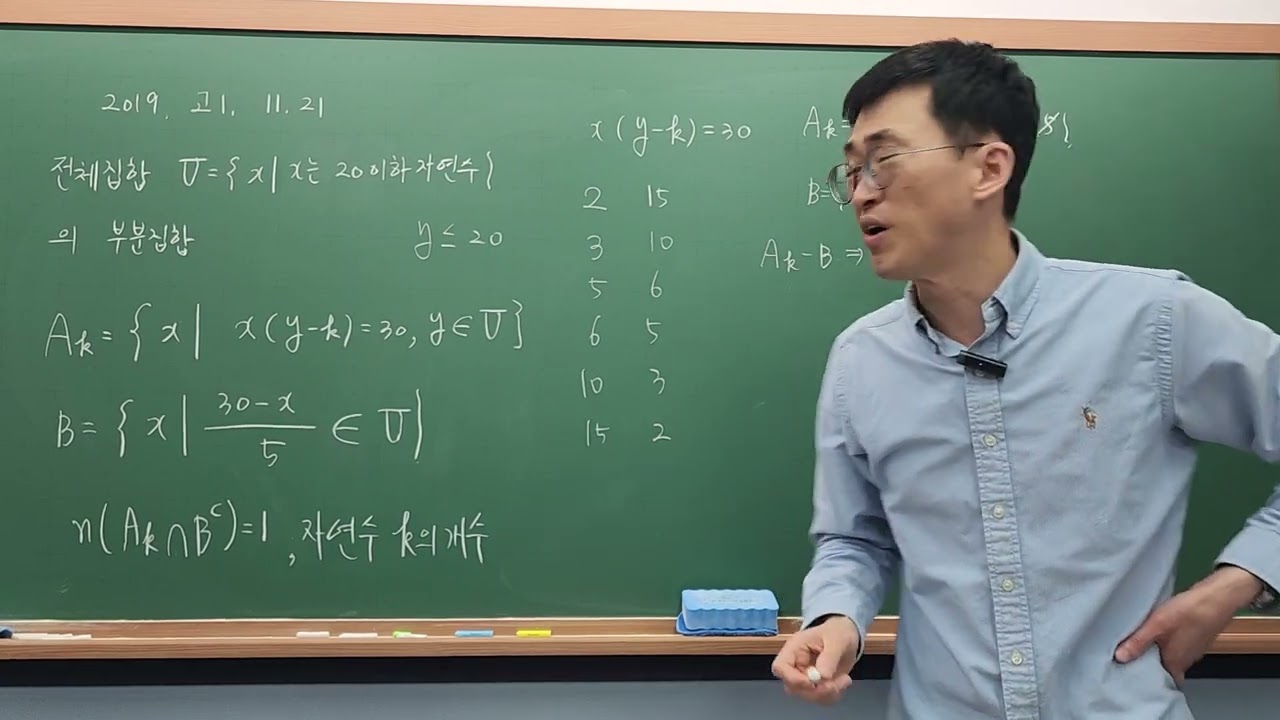 2019. 고1. 11. 21
전체집합 U={x| x는 20이하 자연수}
의 부분집합 y≤20
A_k={x| x(y-k)=30, y∈U}
B={x| (30-x)/5 ∈ U}
n(A_k∩B^c)=1, 자연수 k의 개수
x(y-k)=30
2 15
3 10
5 6
6 5
10 3
15 2
A_k=
B=
A_k-B ⇒